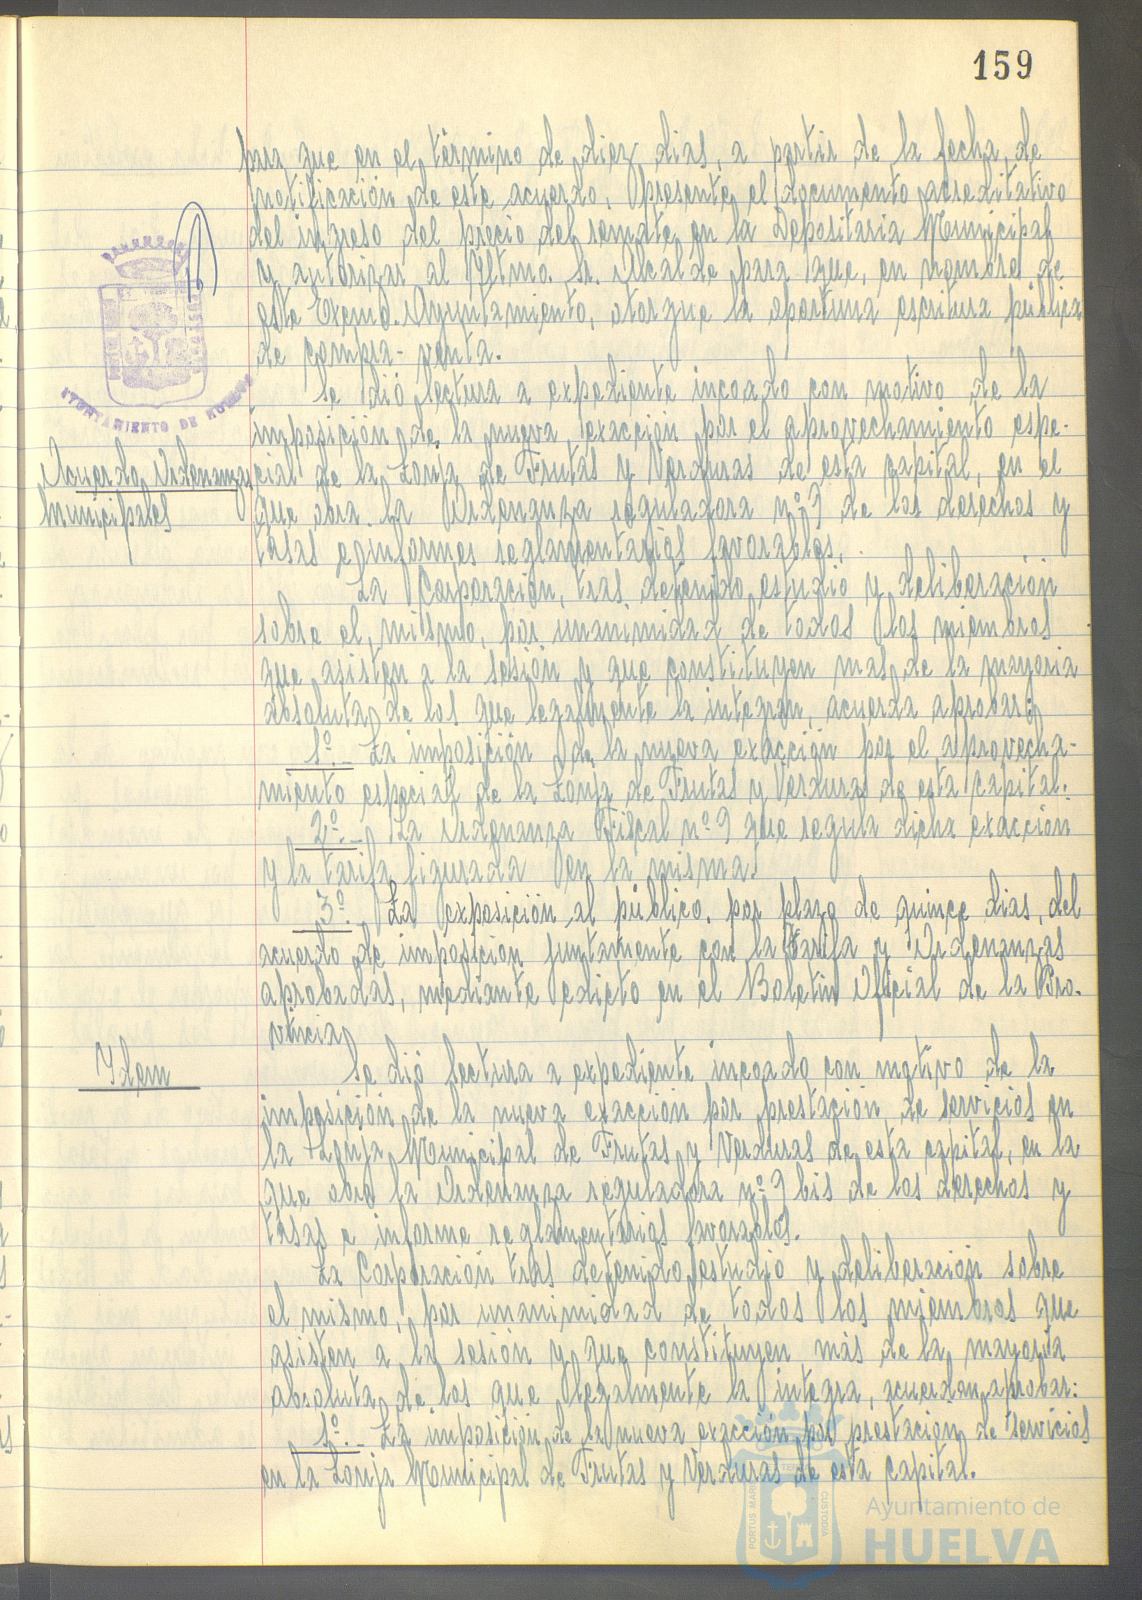 159
para que en el término de diez dias, a partir de la fecha, de
notificación de este acuerdo, presente el documento acreditativo
del ingreso del precio del remate en la Depositaria Municipal
y autorizar al Iltmo. Sr. Alcalde para que, en nombre de
este Excmo. Ayuntamiento, otorgue la oportuna escritura pública
de compra-venta.
Se dió lectura a expediente incoado con motivo de la
imposición de la nueva exacción por el aprovechamiento espe-
Acuerdo Ordenanzas
Municipales
cial de la Lonja de Frutas y Verduras de esta capital, en el
que obra la Ordenanza reguladora nº 9 de los derechos y
tasas e informes reglamentarios favorables.
La Corporación, tras detenido estudio y deliberación
sobre el mismo, por unanimidad de todos los miembros
que asisten a la sesión y que constituyen mas de la mayoria
absoluta de los que legalmente la integran, acuerda aprobar:
1º.- La imposición de la nueva exacción por el aprovecha-
miento especial de la Lonja de Frutas y Verduras de esta capital.
2º.- La Ordenanza Fiscal nº 9 que regula dicha exacción
y la tarifa figurada en la misma.
3º. La exposición al público, por plazo de quince dias, del
acuerdo de imposición juntamente con la tarifa y Ordenanzas
aprobadas, mediante edicto en el Boletin Oficial de la Pro-
vincia.
Idem
Se dió lectura a expediente incoado con motivo de la
imposición de la nueva exacción por prestación de servicios en
la Lonja Municipal de Frutas y Verduras de esta capital, en la
que obra la Ordenanza reguladora nº 9 bis de los derechos y
tasas e informe reglamentarios favorables.
La Corporación tras detenido estudio y deliberación sobre
el mismo, por unanimidad de todos los miembros que
asisten a la sesión y que constituyen más de la mayoria
absoluta de los que legalmente la integra, acuerdan aprobar:
1º.- La imposición de la nueva exacción por prestación de servicios
en la Lonja Municipal de Frutas y Verduras de esta capital.
AYUNTAMIENTO DE HUELVA
PORTUS MARIS
CUSTODIA
Ayuntamiento de
HUELVA